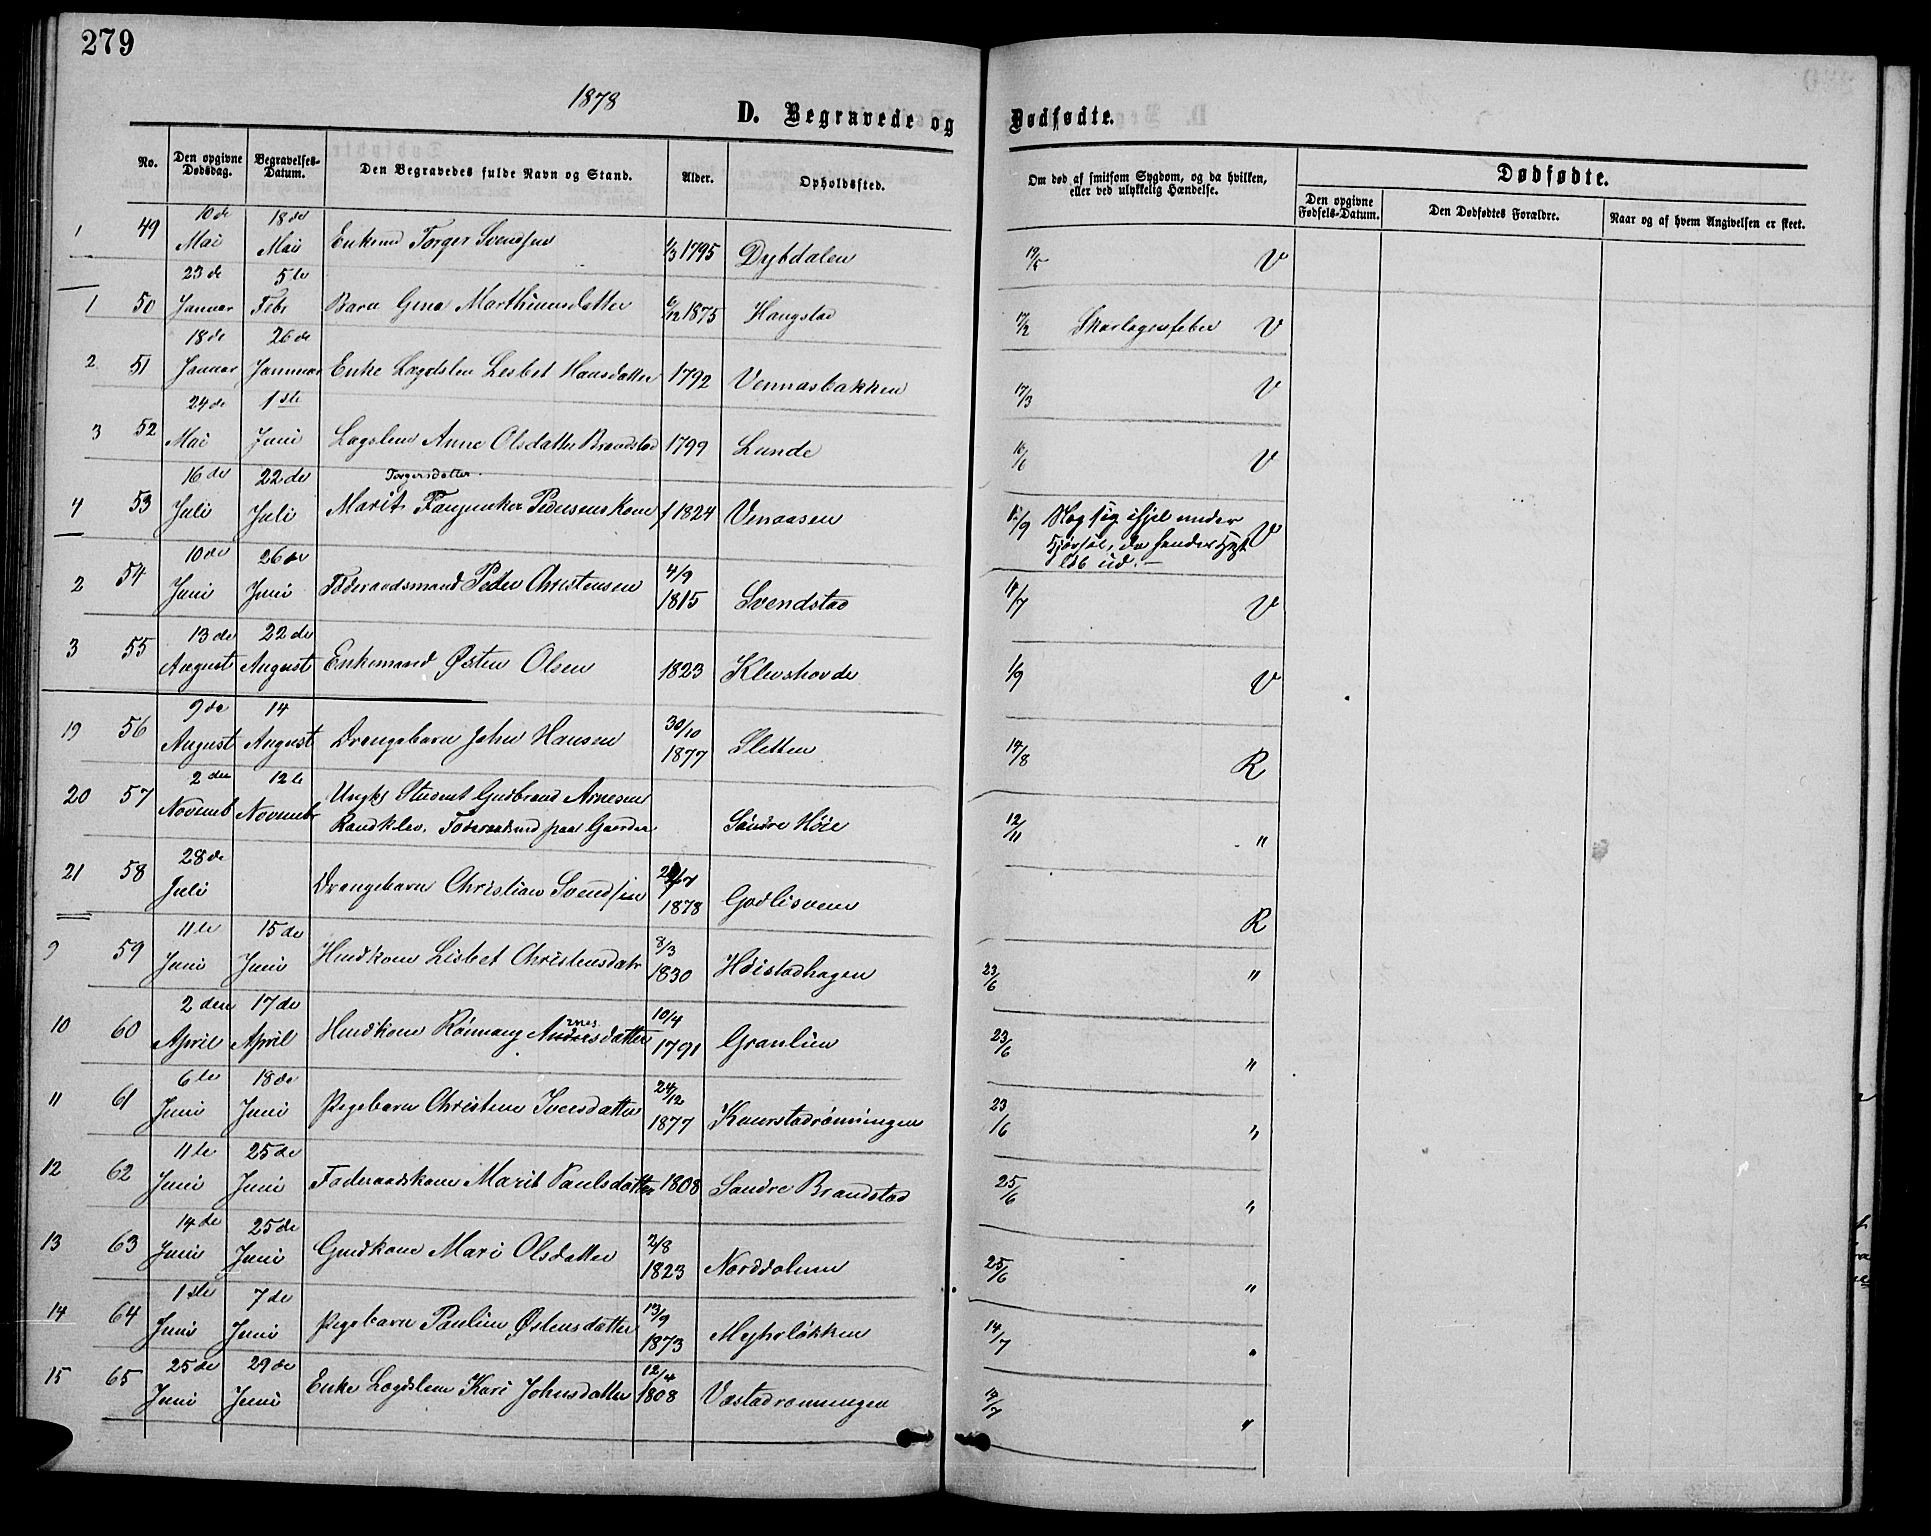 279
1878
D. Begravede og Dødfødte.
No. Den opgivne Dødsdag. Begravelses-Datum. Den Begravedes fulde Navn og Stand. Alder. Opholdssted. Om død af smitsom Sygdom, og da hvilken, eller ved ulykkelig Hændelse. Dødfødte.
Den opgivne Fødsels-Datum. Den Dødfødtes Forældre. Naar og af hvem Angivelsen er skeet.
1 49 10de Mai 18de Mai Enkemd Torger Svendsen 1/3 1795 Dybdalen 19/5 V
1 50 23de Januar 5te Febr Barn Gina Marthinusdatter 6/12 1875 Haugstad 17/2 Skarlagensfeber V
2 51 18de Januar 26de Januar Enke Lægdslem Lisbet Hansdatter 1792 Vennasbakken 17/3 V
3 52 24de Mai 1ste Juni Lagslem Anne Olsdatter Brandstad 1799 Lunde /6 V
Torgersdatter
4 53 16de Juli 22de Juli Marit Pedersens Kone 1824 Venaasen /9 Slog sig ihjel under
Kjørsel, da
Løb ud.— V
2 54 10de Juni 26de Juni Føderaadsmand Peder Christensen 4/9 1815 Svendstad 14/7 V
3 55 13de August 22de August Enkemand Østen Olsen 1823 Klevshovde 1/9 V
19 56 9de August 14 August Drengebarn John Hansen 30/10 1877 Sletten 14/8 R
20 57 2den Novemb 12te Novembr Ungk. Student Gudbrand Arnesen
Randklev, Føderaadsmd paa Gaarden Søndre Høie 12/11 "
21 58 28de Juli Drengebarn Christian Svendsen /7 1878 Godlisveen R
9 59 11te Juni 15de Juni Husdkone Lisbet Christensdatr 8/3 1830 Høistadhagen 23/6 "
10 60 2den April 17de April Husdkone Rønnaug Andersdatter 10/4 1791 Granlien 23/6 "
11 61 6te Juni 18de Juni Pigebarn Christine Iversdatter 24/12 1877 Kaurstadrønningen 23/6 "
12 62 11te Juni 25de Juni Føderaadskone Marit Paulsdatter 1808 Søndre Brandstad 25/6 "
13 63 14de Juni 25de Juni Gmdkone Mari Olsdatter 2/8 1823 Norddalene 25/6 "
14 64 1ste Juni 7de Juni Pigebarn Pauline Østensdatter 13/9 1873 Myhrløkken 14/7 "
15 65 25de Juni 29de Juni Enke Lægdslem Kari Johnsdatter 12/4 1808 Vastadrønningen 19/7 "